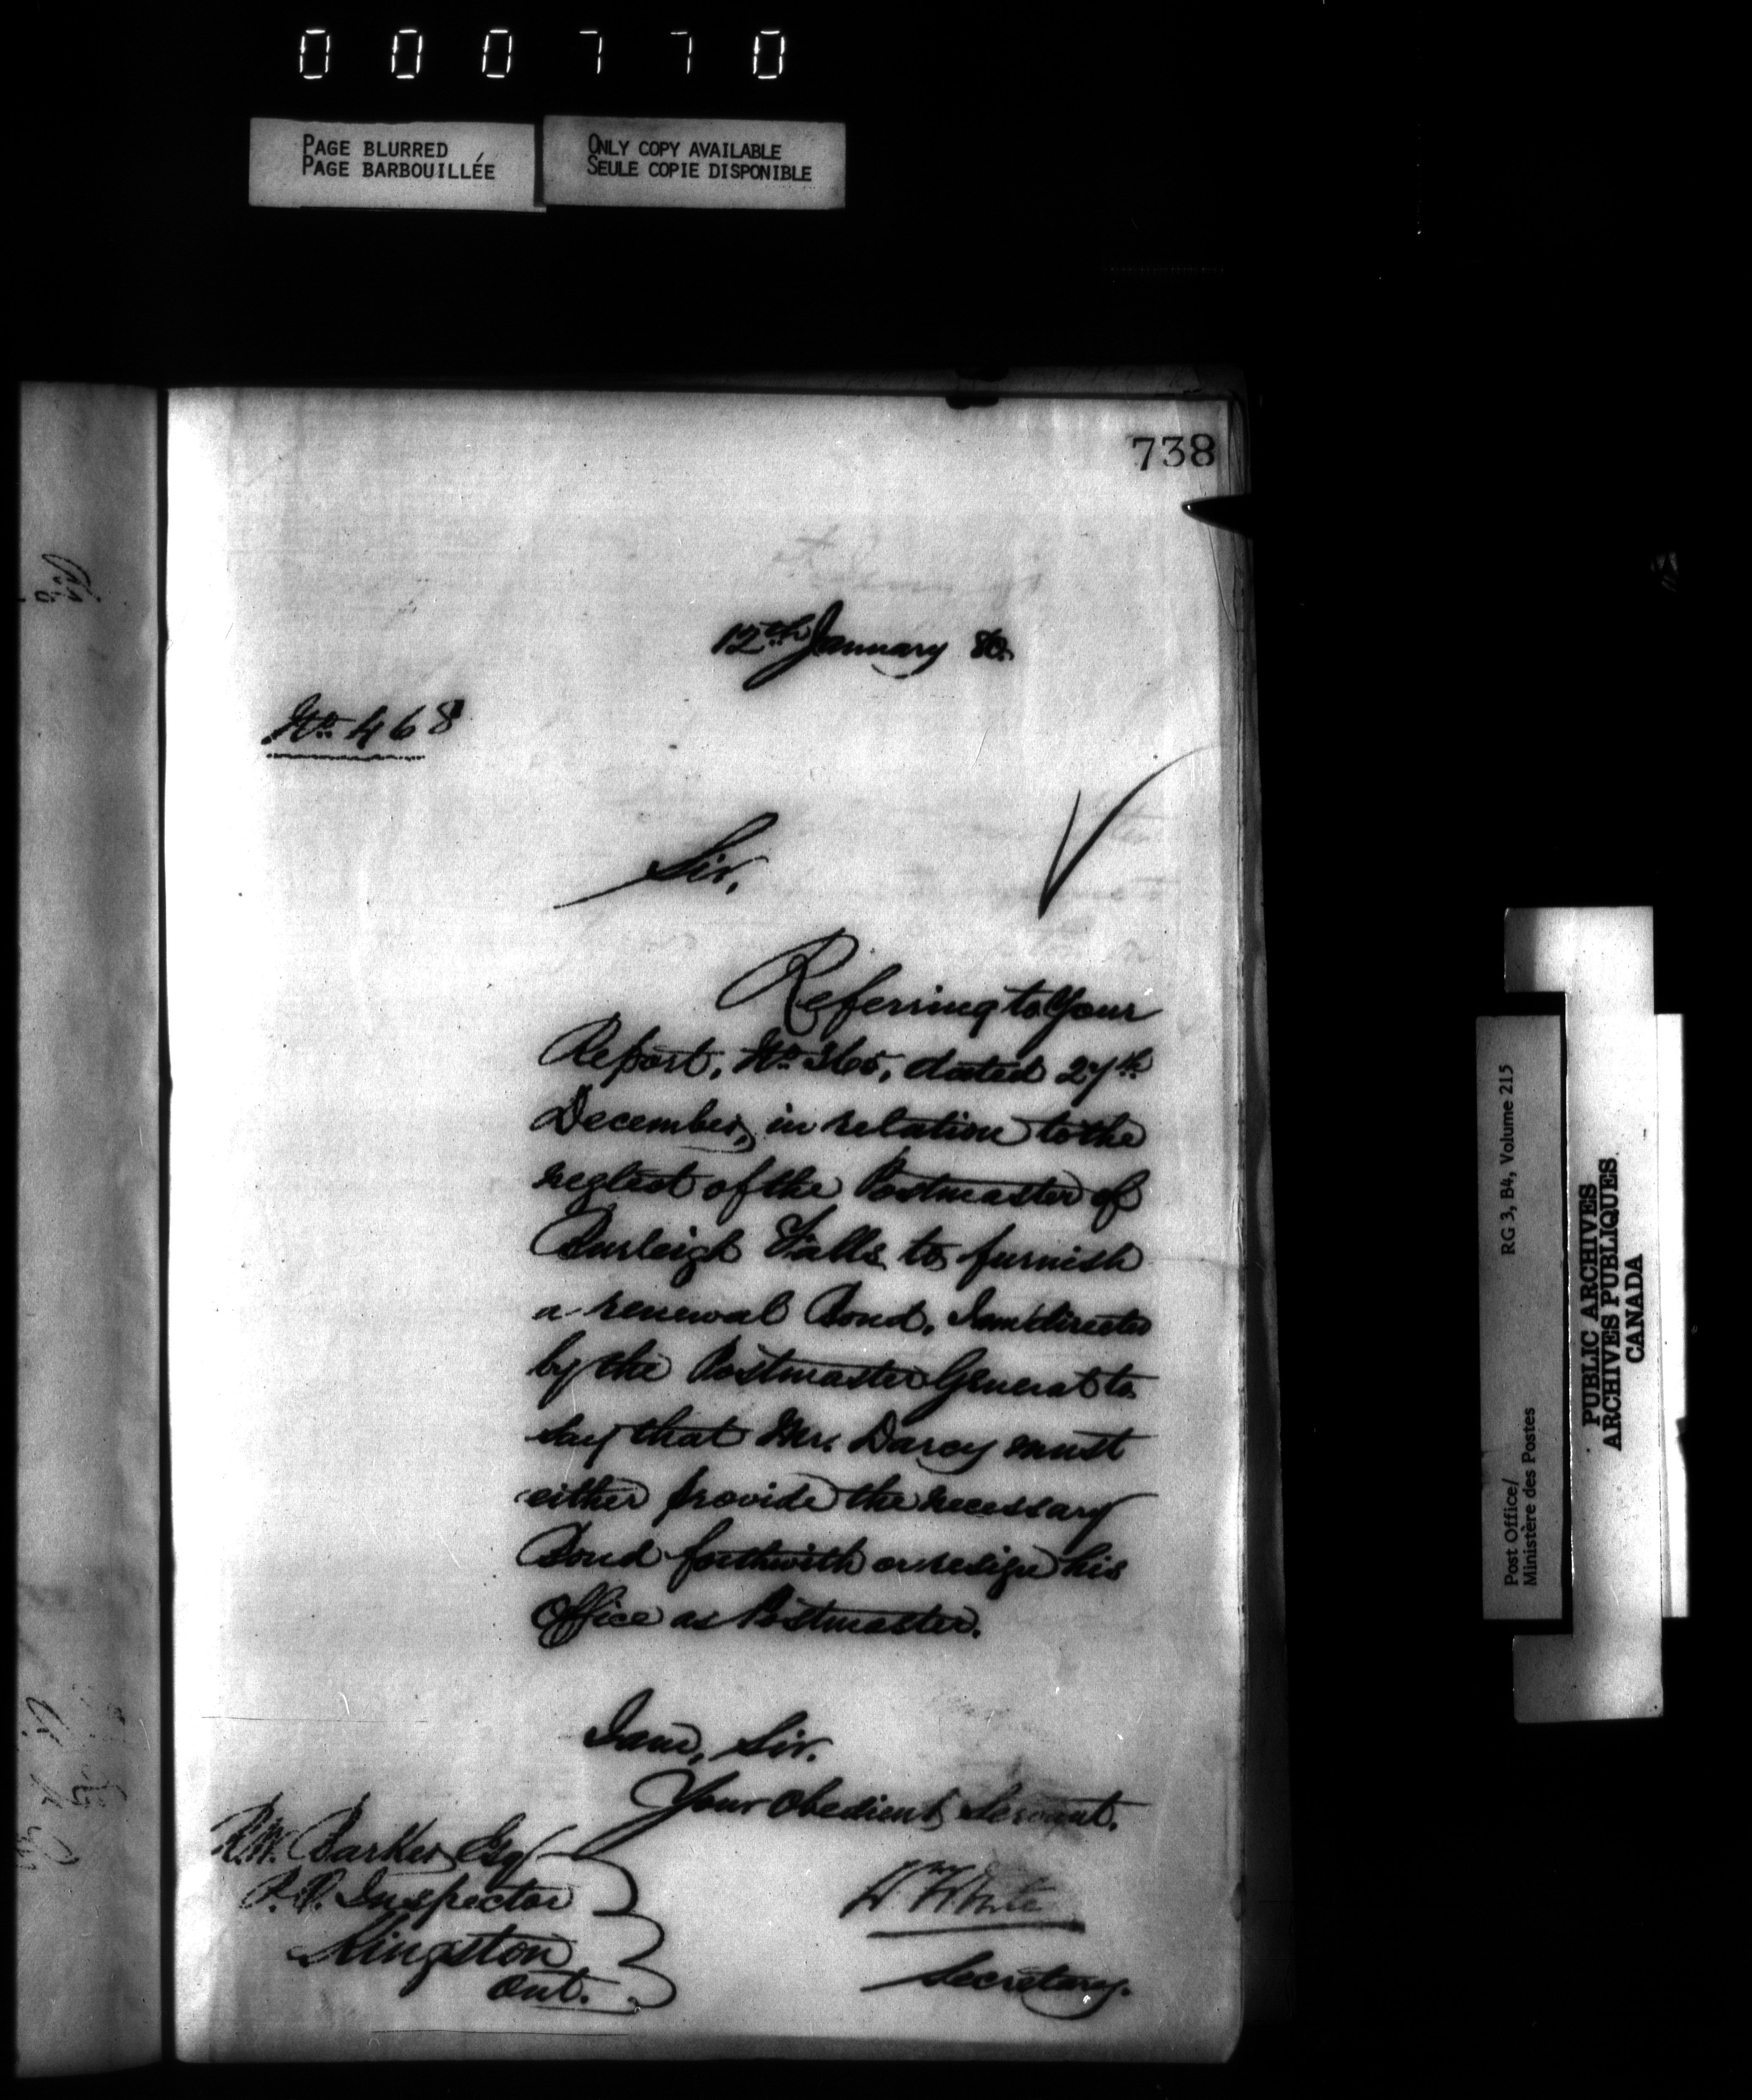 000770
PAGE BLURRED
PAGE BARBOUILLÉE
ONLY COPY AVAILABLE
SEULE COPIE DISPONIBLE
738
12th January 80.
No. 468
Sir,
Referring to Your
Report, No. 365, dated 27th
December, in relation to the
neglect of the Postmaster of
Burleigh Falls to furnish
a renewal Bond, I am directed
by the Postmaster General to
say that Mr. Darcy must
either provide the necessary
Bond forthwith or resign his
Office as Postmaster.
I am, Sir.
Your Obedient Servant.
R.W. Barker Esq
P.O. Inspector
Kingston
Ont.
Wm White
Secretary.
Post Office/
Ministère des Postes
RG 3, B4, Volume 215
PUBLIC ARCHIVES
ARCHIVES PUBLIQUES
CANADA